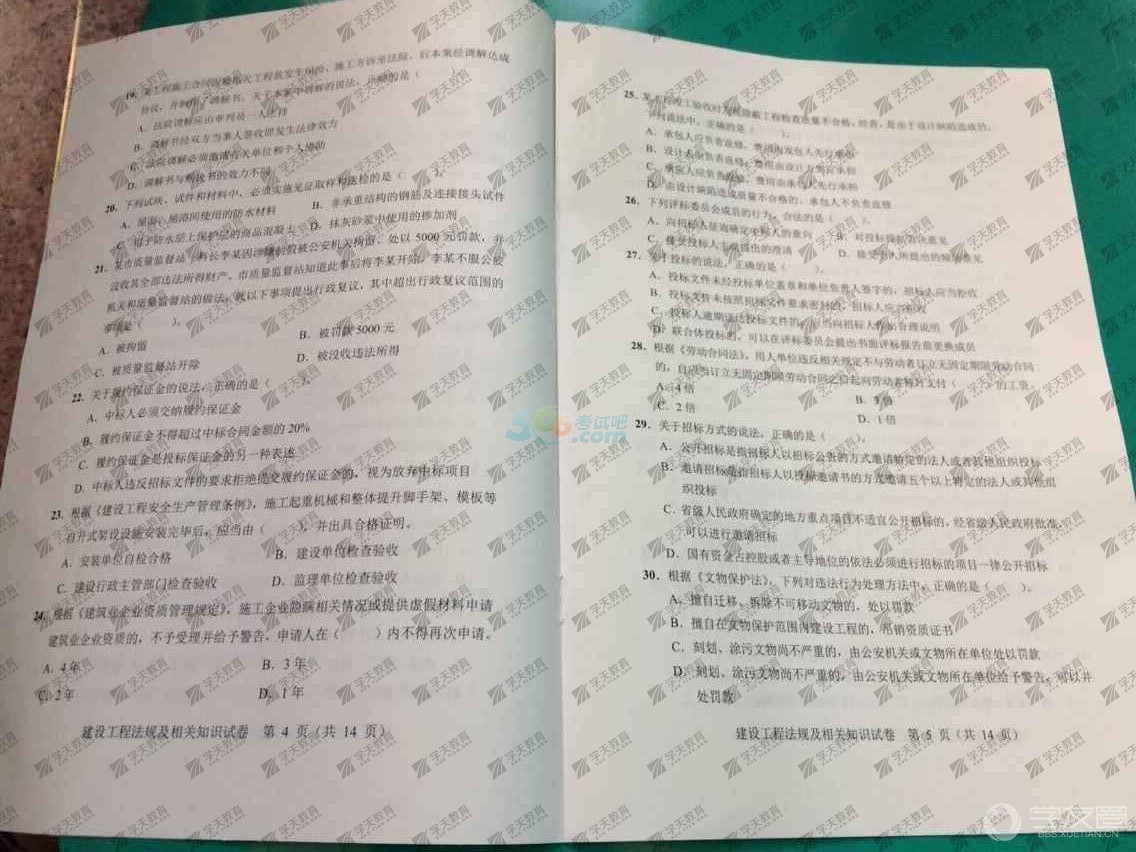 19. 某工程施工合同履
工程款发生纠纷,施工方诉至法院,后本案经调解达成
协议,并制作了调解书。关于本案中调解的说法,正确的是(
A. 法院调解应由审判员一人主持
B. 调解书经双方当事人签收即发生法律效力
C. 法院调解必须邀请有关单位和个人协助
D. 调解书与判决书的效力不同
20. 下列试块、试件和材料中,必须实施见证取样和送检的是( )。
A. 屋面、厕浴间使用的防水材料 B. 非承重结构的钢筋及连接接头试件
C. 用于防水层上保护层的商品混凝土 D. 抹灰砂浆中使用的掺加剂
21. 某市质量监督站
站长李某因
被公安机关拘留、处以 5000 元罚款,并
没收其全部违法所得财产、市质量监督站知道此事后将李某开除,李某不服公安
机关和质量监督站的做法,就以下事项提出行政复议,其中超出行政复议范围的
事项是( )。
A. 被拘留 B. 被罚款 5000 元
C. 被质量监督站开除 D. 被没收违法所得
22. 关于履约保证金的说法,正确的是( )。
A. 中标人必须交纳履约保证金
B. 履约保证金不得超过中标合同金额的 20%
C. 履约保证金是投标保证金的另一种表述
D. 中标人违反招标文件的要求拒绝提交履约保证金的,视为放弃中标项目
23. 根据《建设工程安全生产管理条例》,施工起重机械和整体提升脚手架、模板等
自升式架设设施安装完毕后,应当由( ),并出具合格证明。
A. 安装单位自检合格 B. 建设单位检查验收
C. 建设行政主管部门检查验收 D. 监理单位检查验收
24. 根据《建筑业企业资质管理规定》,施工企业隐瞒相关情况或提供虚假材料申请
建筑业企业资质的,不予受理并给予警告,申请人在( )内不得再次申请。
A. 4 年 B. 3 年
C. 2 年 D. 1 年
建设工程法规及相关知识试卷 第 4 页(共 14 页)
25. 某工程竣工验收时发现隐蔽工程检查质量不合格,经查,是由于设计缺陷造成的。
下列说法中,正确的是( )。
A. 承包人应负责返修,费用由发包人先行承担
B. 设计方应负责返修,费用由设计方先行承担
C. 承包人应负责返修,费用由承包人先行承担
D. 由设计缺陷造成质量不合格的,承包人不负责返修
26. 下列评标委员会成员的行为,合法的是( )。
A. 向招标人征询确定中标人的意向 B. 对投标
C. 接受投标人主动提出的澄清 D. 接受
27. 关于投标的说法,正确的是( )。
A. 投标文件未经投标单位盖章和单位负责人签字的,招标人应当拒收
B. 投标文件未按照招标文件要求密封的,招标人应当拒收
C. 投标人逾期送达投标文件的,应当向招标人作出合理说明
D. 联合体投标的,可以在评标委员会提出书面评标报告前更换成员
28. 根据《劳动合同法》,用人单位违反相关规定不与劳动者订立无固定期限劳动合同
的,自应当订立无固定期限劳动合同之日起向劳动者每月支付( )的工资。
A. 4 倍 B. 3 倍
C. 2 倍 D. 1 倍
29. 关于招标方式的说法,正确的是( )。
A. 公开招标是指招标人以招标公告的方式邀请特定的法人或者其他组织投标
B. 邀请招标是指招标人以投标邀请书的方式邀请五个以上特定的法人或其他组
织投标
C. 省级人民政府确定的地方重点项目不适宜公开招标的,经省级人民政府批准,
可以进行邀请招标
D. 国有资金占控股或者主导地位的依法必须进行招标的项目一律公开招标
30. 根据《文物保护法》,下列对违法行为处理方法中,正确的是( )。
A. 擅自迁移、拆除不可移动文物的,处以罚款
B. 擅自在文物保护范围内建设工程的,吊销资质证书
C. 刻划、涂污文物尚不严重的,由公安机关或文物所在单位处以罚款
D. 刻划、涂污文物尚不严重的,由公安机关或文物所在单位给予警告,可以并
处罚款
建设工程法规及相关知识试卷 第 5 页(共 14 页)
学天教育
考试吧
.com
学友圈
BBS.XUETIAN.CN